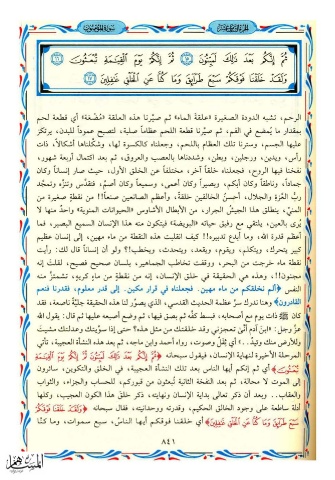 ثُمَّ إِنَّكُم بَعْدَ ذَٰلِكَ لَمَيِّتُونَ ﴿١٥﴾ ثُمَّ إِنَّكُمْ يَوْمَ الْقِيَامَةِ تُبْعَثُونَ ﴿١٦﴾
وَلَقَدْ خَلَقْنَا فَوْقَكُمْ سَبْعَ طَرَائِقَ وَمَا كُنَّا عَنِ الْخَلْقِ غَافِلِينَ ﴿١٧﴾
الرحم، تشبه الدودة الصغيرة «علقة الماء» ثم صيّرنا هذه العلقة «مُضْغة» أي قطعة لحم
بمقدار ما يُمضغ في الفم، ثم صيّرنا قطعة اللحم عظاماً صلبة، لتصبح عموداً للبدن، يرتكز
عليها الجسم، وسترنا تلك العظام باللحم، وجعلناه كالكسوة لها، وشكّلناها أشكالاً، ذات
رأس، ويدين، ورجلين، وبطن، وشددناها بالعصب والعروق، ثم بعد اكتمال أربعة شهور،
نفخنا فيها الروح، فجعلناه خلقاً آخر، مختلفاً عن الخلق الأول، حيث صار إنساناً وكان
جماداً، وناطقاً وكان أبكم، وبصيراً وكان أعمى، وسميعاً وكان أصمّ، فتقدّس وتنزّه وتمجّد
ربُّ العزة والجلال، أحسنُ الخالقين خلقاً، وأعظم الصانعين صنعاً!! من نقطةٍ صغيرة من
المنيّ، ينطلق هذا الجيش الجرار، من الأبطال الأشاوس «الحيوانات المنوية» واحدٌ منها لا
يُرى بالعين، يلتقي مع رفيق حياته «البويضة» فيتكون منه هذا الإنسان السميع البصير، فما
أعظم قدرة الله، وما أبدع تدبيره!! كيف انقلبت هذه النقطة من ماء مهين، إلى إنسان عظيم
كبير يتحرك، ويتكلم، ويقوم، ويقعد، ويتحدث، ويخطب؟؟ ولو أن إنساناً قال لك: رأيت
نقطة ماء خرجت من البحر، ووقفت تخاطب الجماهير، بلسان صحيح فصيح، لقلت إنه
مجنون!!، وهذه هي الحقيقة في خلق الإنسان، إنه من نقطةٍ من ماءٍ كريهٍ، تشمئزُّ منه
النفس ﴿ألم نخلقكم من ماء مهين. فجعلناه في قرار مكين. إلى قدر معلوم، فقدرنا فنعم
القادرون﴾ وهنا ندرك سرَّ عظمة الحديث القدسي، الذي يصوّر لنا هذه الحقيقة جليَّةً ناصعة، فقد
كان ﷺ ذات يوم مع أصحابه، فبسط كفَّه ثم بصق فيها، ثم وضع أصبعه عليها ثم قال: يقول الله
عزَّ وجل: «ابن آدم أنَّى تعجزني وقد خلقتك من مثل هذه؟ حتى إذا سوَّيتك وعدلتك مشيتَ
وللأرض منك وئيدٌ..» أي ثِقَلٌ وصوت، رواه أحمد وابن ماجه، ثم بعد هذه النشأة العجيبة، تأتي
المرحلة الأخيرة لنهاية الإنسان، فيقول سبحانه ﴿ثُمَّ إِنَّكُم بَعْدَ ذَٰلِكَ لَمَيِّتُونَ ثُمَّ إِنَّكُمْ يَوْمَ الْقِيَامَةِ
تُبْعَثُونَ﴾ أي ثم إنكم أيها الناس بعد تلك النشأة العجيبة، في الخلق والتكوين، سائرون
إلى الموت لا محالة، ثم بعد النفخة الثانية تُبعثون من قبوركم، للحساب والجزاء، والثواب
والعقاب.. وبعد أن ذكر تعالى بداية الإنسان ونهايته، ذكر خلق هذا الكون العجيب، وكلها
أدلة ساطعة على وجود الخالق الحكيم، وقدرته ووحدانيته، فقال سبحانه ﴿وَلَقَدْ خَلَقْنَا فَوْقَكُمْ
سَبْعَ طَرَائِقَ وَمَا كُنَّا عَنِ الْخَلْقِ غَافِلِينَ﴾ أي خلقنا فوقكم أيها الناسُ، سبع سموات، وما كنَّا
٨٤١